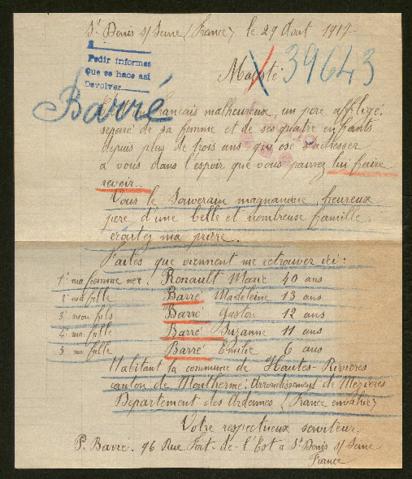 St Denis s/ Seine (France) le 29 Août 1917
Pedir informes
Que se haos asi
Devolver
39643
Majesté
Barré
français malheureux, un père affligé
séparé de sa femme et de ses quatre enfants
depuis plus de trois ans qui ose s'adresser
à vous dans l'espoir que vous pourrez lui faire
revoir.
Vous le Souverain magnanime, heureux
père d'une belle et nombreuse famille
écoutez ma prière.
Faites que viennent me retrouver ici:
1° ma femme née. Ronault Marie 40 ans
ma fille Barré Madeleine 13 ans
3° mon fils Barré Gaston 12 ans
ma fille Barré Suzanne 11 ans
ma fille Barré Emilie 6 ans
Habitant la commune de Hautes-Rivières
canton de Monthermé. Arrondissement de Mézières
Département des Ardennes (France envahie)
Votre respectueux serviteur.
P. Barré. 96 Rue Fort-de-l'Est à St Denis s/ Seine
France